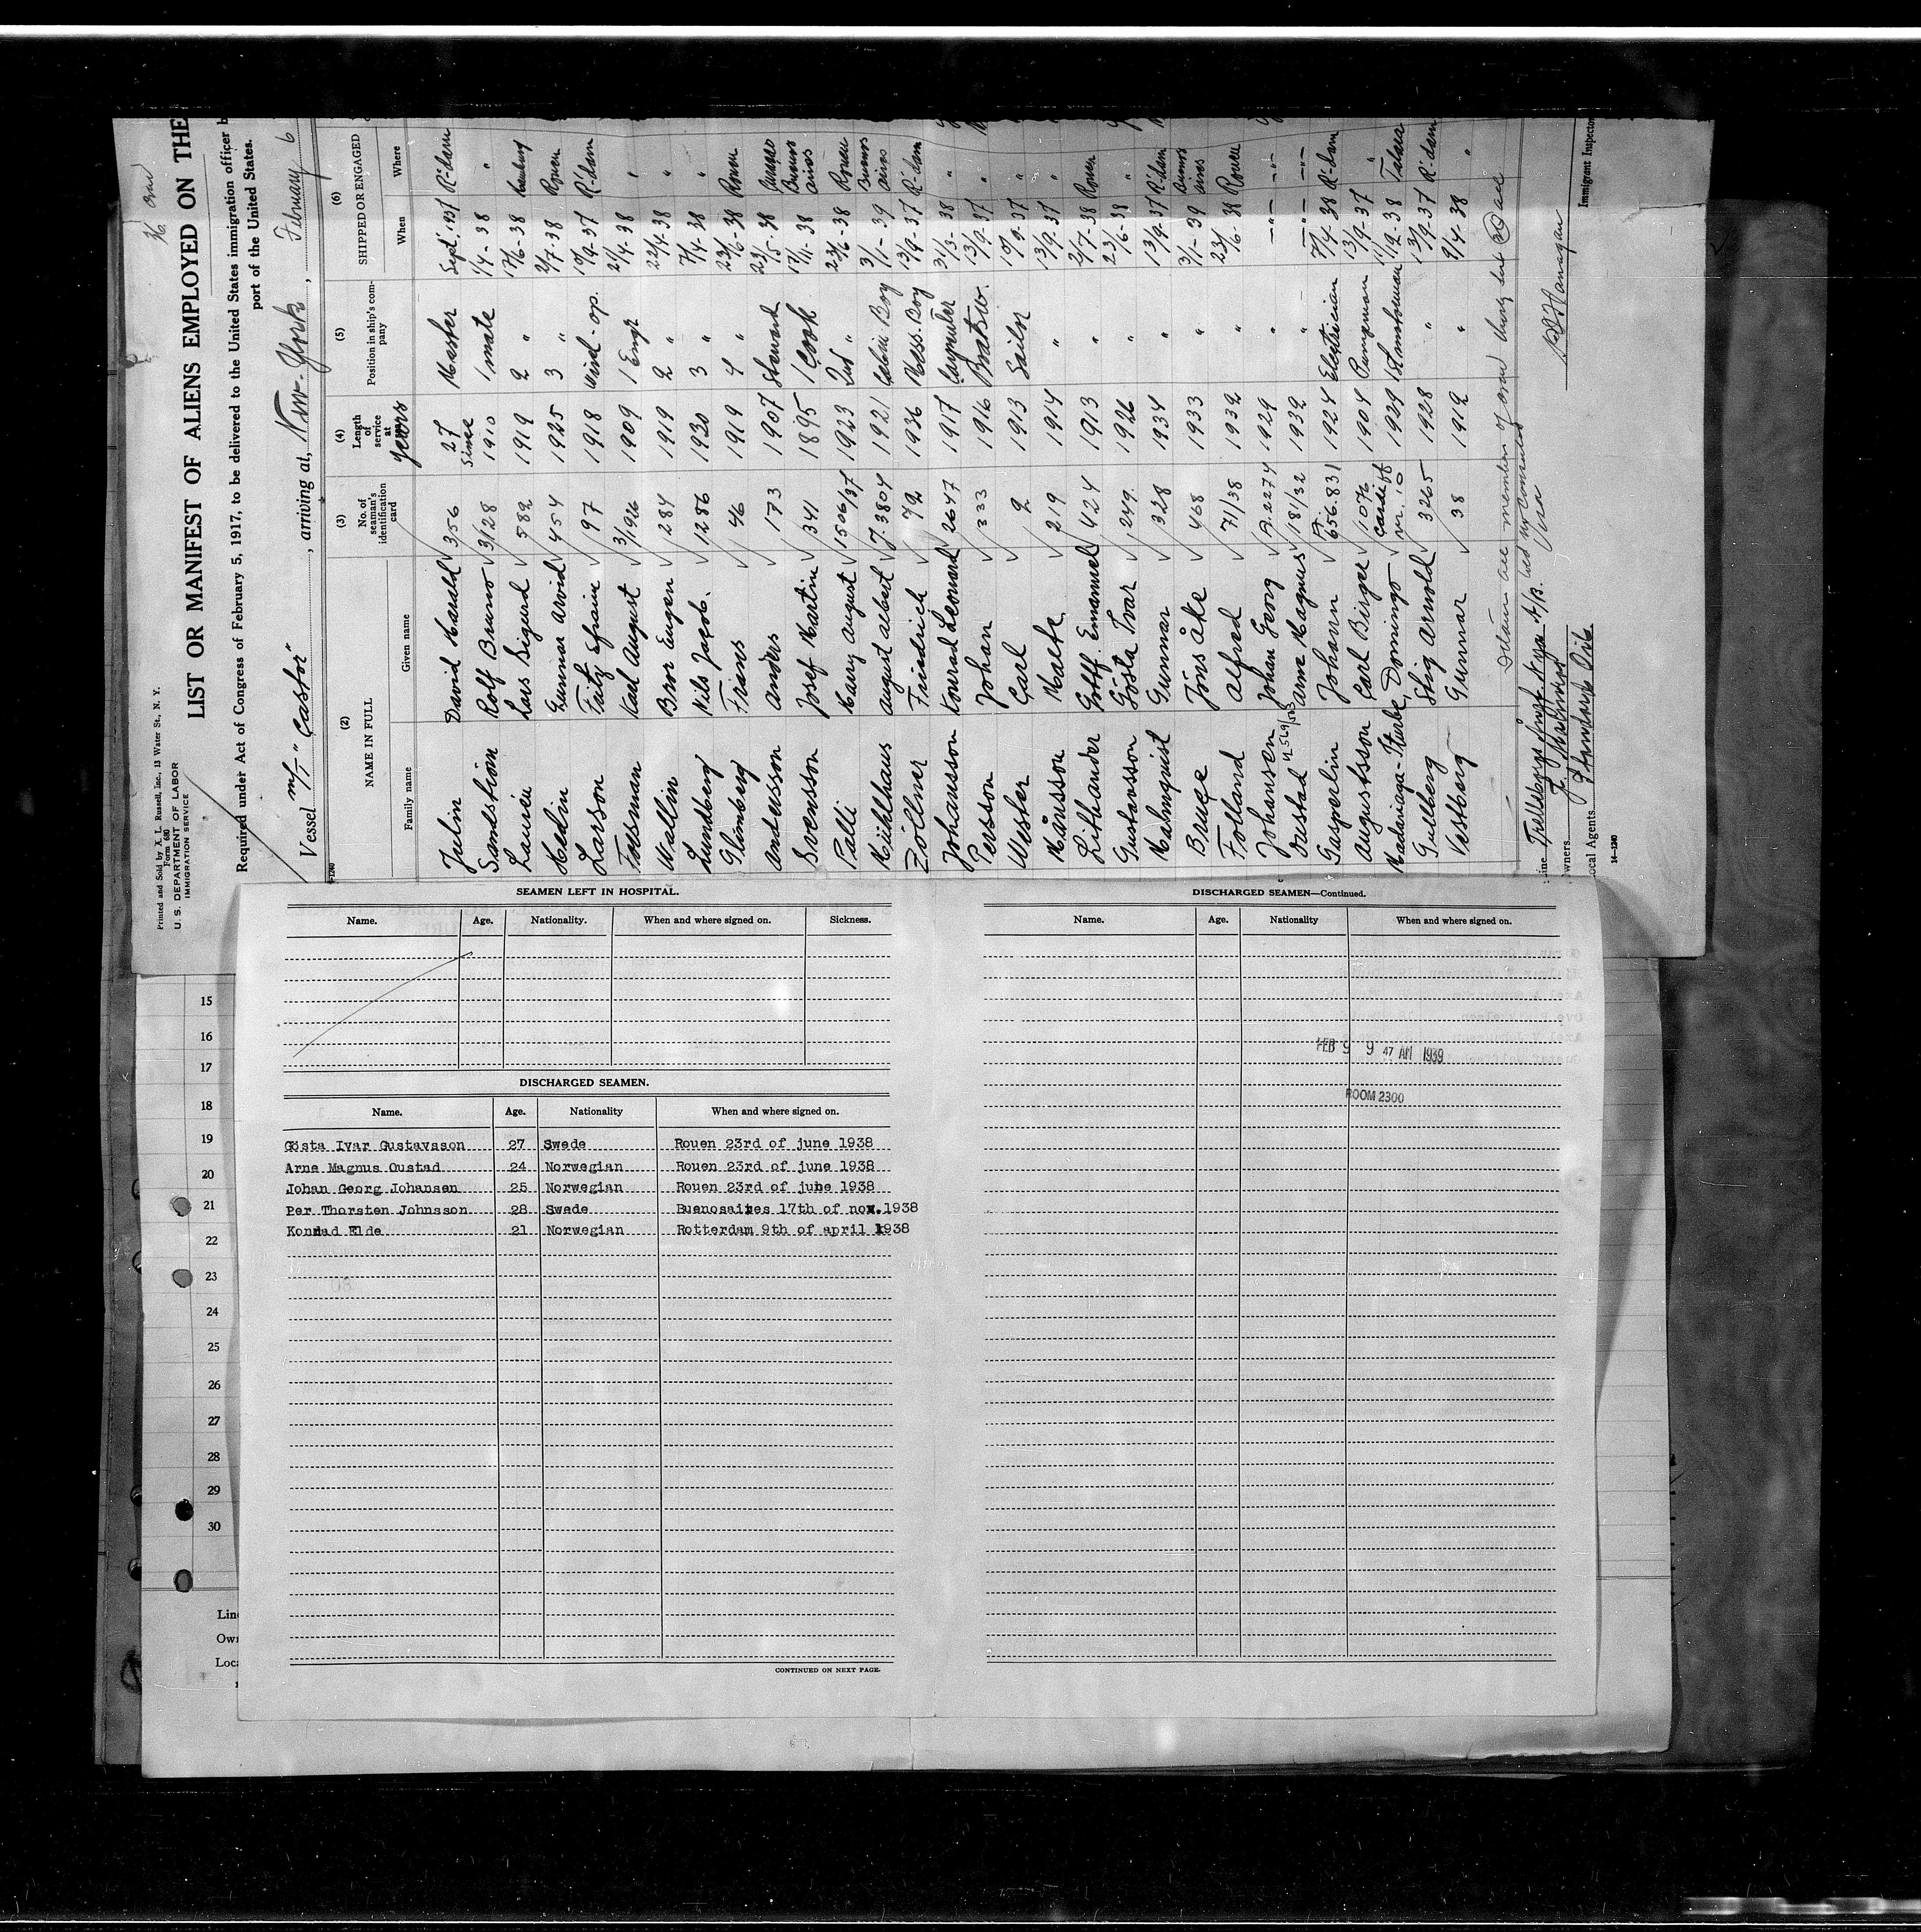 Printed and Sold by X. L. Russell, Inc., 13 Water St., N. Y.
Form 680
U. S. DEPARTMENT OF LABOR
IMMIGRATION SERVICE
LIST OR MANIFEST OF ALIENS EMPLOYED ON THE
Required under Act of Congress of February 5, 1917, to be delivered to the United States immigration officer b
port of the United States.
Vessel M/T "Castor", arriving at, New-York, February 6
(2) (3) (4) (5) (6)
NAME IN FULL No. of seaman's identification card Length of service at years Position in ship's company SHIPPED OR ENGAGED
Family name Given name When Where
Julin David Harald 356 27 Master Sept. 1937 R-dam
Sandström Rolf Bruno 3/128 since 1910 1 mate 1/4-38 "
Laurén Lars Sigurd 582 1919 2 " 17/6-38 Hamburg
Hedin Gunnar Arvid 454 1925 3 " 2/7-38 Rouen
Larson Fritz Efraim 97 1918 Wirel-op. 10/9-37 R-dam
Karl August 31/926 1909 1 Engr 21/4-38 "
Wallin Bror Eugen 284 1919 2 " 22/4-38 "
Lundberg Nils Jacob. 1286 1930 3 " 7/4-38 "
Glimberg Frans 46 1919 4 " 23/6-38 Rouen
Andersson Anders 173 1907 Steward 23/5-38
Svensson Josef Martin 341 1895 1 Cook 17/11-38 Buenos aires
Palli Harry August 1506/37 1923 2nd " 23/6-38 Rouen
Kühlhaus August Albert J.3804 1921 Cabin Boy 3/1-39 Buenos aires
Zöllner Friedrich 72 1936 Mess. Boy 13/9-37 R-dam
Johansson Konrad Leonard 2647 1917 Carpenter 31/3-38 "
Persson Johan 333 1916 Boatsw. 13/9-37 "
Wester Carl 2 1913 Sailor 10/9-37 "
Månsson Malte 219 1914 " 13/9-37 "
Lithander Gottf. Emanuel 424 1913 " 2/7-38 Rouen
Gustavsson Gösta Ivar 249. 1926 " 23/6-38 "
Malmquist Gunnar 328 1934 " 13/9-37 R-dam
Bruce Jöns Åke 468 1933 " 3/1-39 Buenos aires
Folland Alfred 71/38 1932 " 23/6-38 Rouen
Johansen Johan Georg A.2274 1929 " -"- -"-
Oustad Arne Magnus 181/32 1932 " -"- -"-
Gasperlin Johann 656.831 1924 Electrician 7/4-38 R-dam
Augustsson Carl Birger 1076 1904 Pumpman 13/9-37 "
Madariaga-Iturbe, Domingo Cardiff nr. 10 1929 1 Talara
Gullberg Stig Arnold 3265 1928 " 13/9-37 R-dam
Vestberg Gunnar 38 1912 " 9/4-38 "
Line Trelleborgs Ångf. Nya A/B.
Owners
Local Agents Standard Oil
Immigrant Inspector
14-1240
SEAMEN LEFT IN HOSPITAL.
Name. Age. Nationality. When and where signed on. Sickness.
DISCHARGED SEAMEN.
Name. Age. Nationality When and where signed on.
Gösta Ivar Gustavsson 27 Swede Rouen 23rd of june 1938
Arne Magnus Oustad 24 Norwegian Rouen 23rd of june 1938
Johan Georg Johansen 25 Norwegian Rouen 23rd of june 1938
Per Thorsten Johnsson 28 Swede Buenosaires 17th of nov.1938
Konrad Elde 21 Norwegian Rotterdam 9th of april 1938
CONTINUED ON NEXT PAGE.
DISCHARGED SEAMEN—Continued.
Name. Age. Nationality When and where signed on.
FEB 9 9 47 AM 1939
ROOM 2300
15
16
17
18
19
20
21
22
23
24
25
26
27
28
29
30
Line
Own
Loca